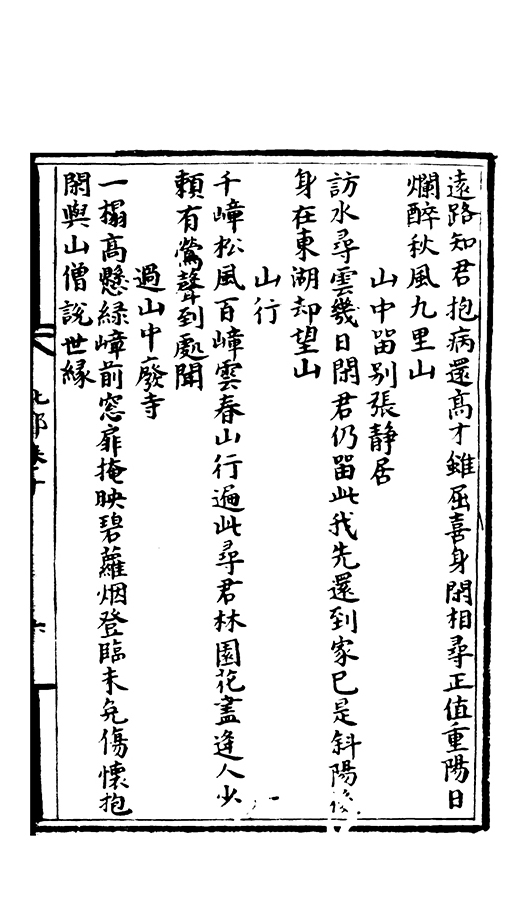 遠路知君抱病還髙才雖屈喜身閑相尋正值重陽日
爛醉秋風九里山
山中留别張靜居
訪水尋雲幾日閑君仍留此我先還到家已是斜陽後
身在東湖却望山
山行
千嶂松風百嶂雲春山行遍此尋君林園花盡逢人少
頼有鶯聲到處聞
過山中廢寺
一榻髙懸緑嶂前窓扉掩映碧蘿烟登臨未免傷懷抱
閑與山僧說世縁